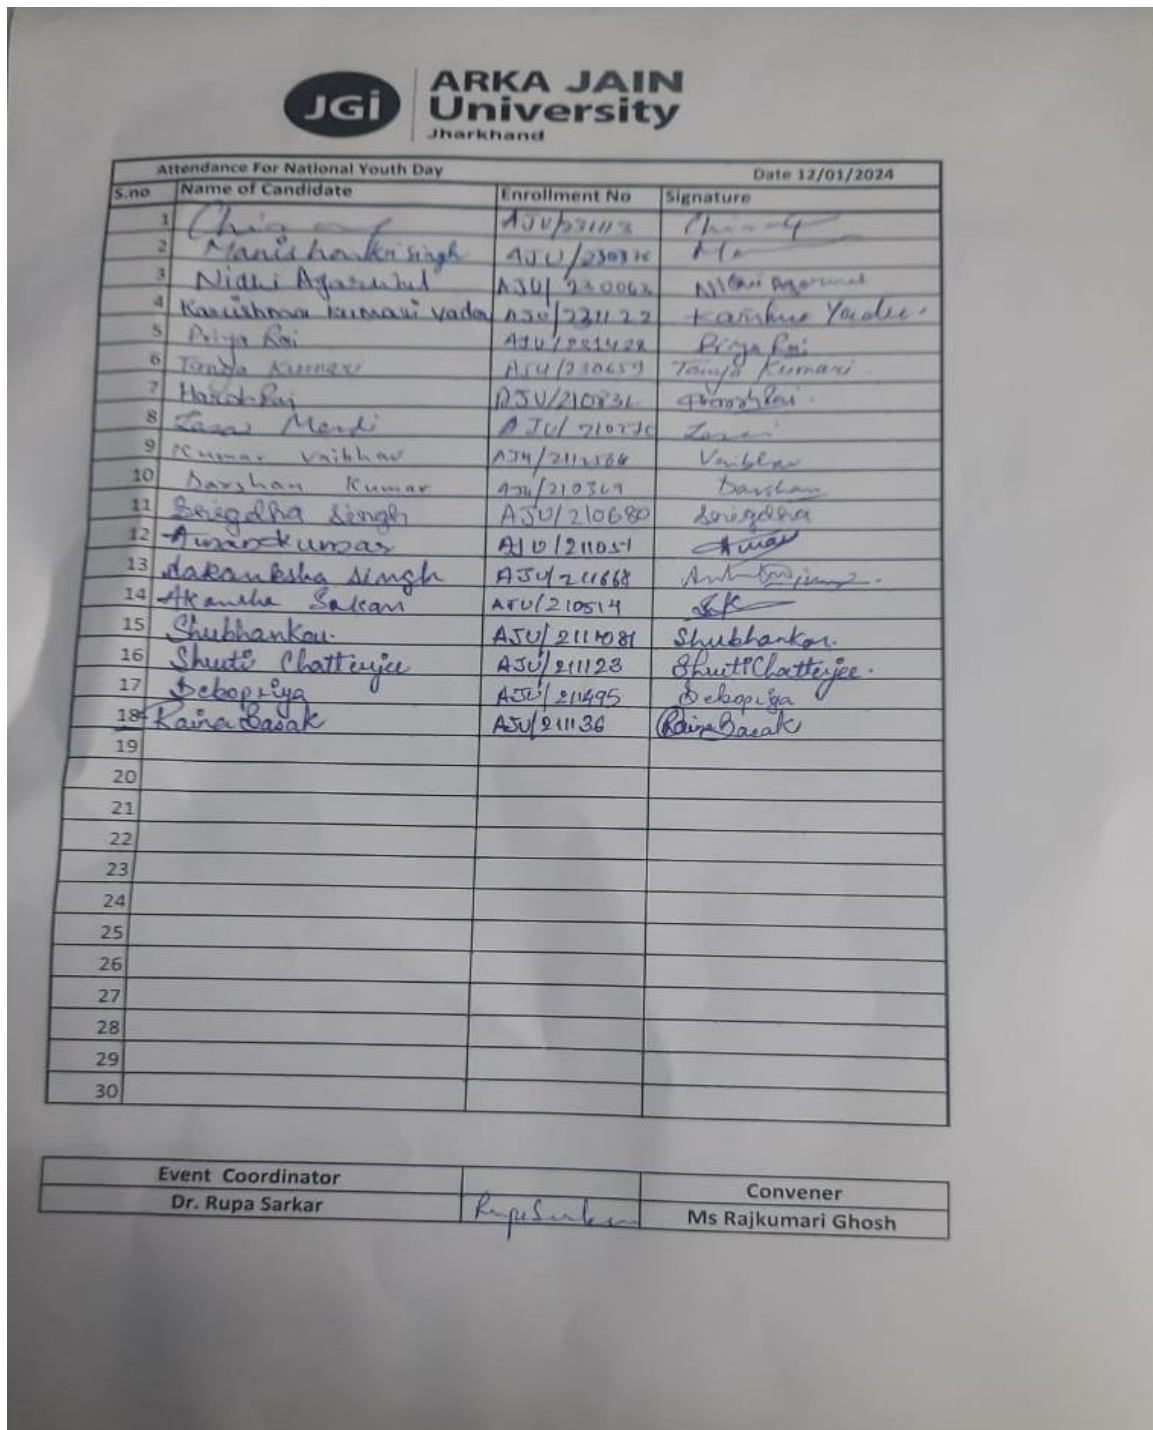 JGi
ARKA JAIN
University
Jharkhand
Attendance For National Youth Day Date 12/01/2024
S.no Name of Candidate Enrollment No Signature
1
2 Singh
3 Nidhi Agarwal AJU/230062 Nidhi Agarwal
4 Kumari Yadav AJU/231122 Yadav
5 Priya Rai Priya Rai
6 Tanya Kumari AJU/230659 Tanya Kumari
7 Harsh Raj Harsh Raj
8
9 Kumar Vaibhav Vaibhav
10 Darshan Kumar AJU/210369 Darshan
11 Snigdha Singh AJU/210680 Snigdha
12 Aman kumar AJU/211051 Aman
13 Aakanksha Singh AJU/211668
14 Akansha AJU/210514
15 Shubhankar. Shubhankar.
16 Shruti Chatterjee AJU/211123 Shruti Chatterjee.
17 Debopriya AJU/211495 Debopriya
18 Raina Basak AJU/211136 Raina Basak
19
20
21
22
23
24
25
26
27
28
29
30
Event Coordinator Convener
Dr. Rupa Sarkar Rupa Sarkar Ms Rajkumari Ghosh